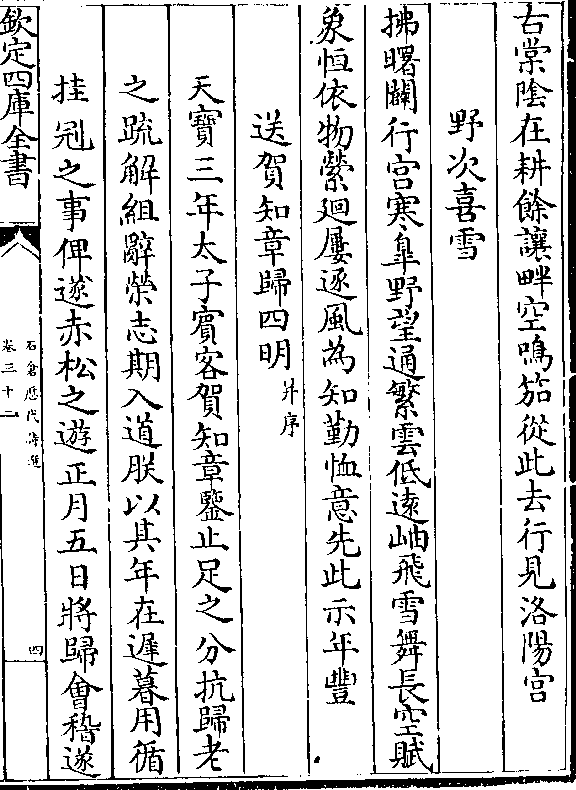 古棠陰在耕餘讓畔空鳴笳從此去行見洛陽宮
野次喜雪
拂曙闢行宮寒臯野望通繁雲低遠岫飛雪舞長空賦
象恒依物縈迴屢逐風為知勤恤意先此示年豐
送賀知章歸四明并序
天寶三年太子賓客賀知章鑒止足之分抗歸老
之疏解組辭榮志期入道朕以其年在遲暮用循
挂冠之事俾遂赤松之遊正月五日將歸會稽遂
欽定四庫全書
石倉歷代詩選
卷三十二
四